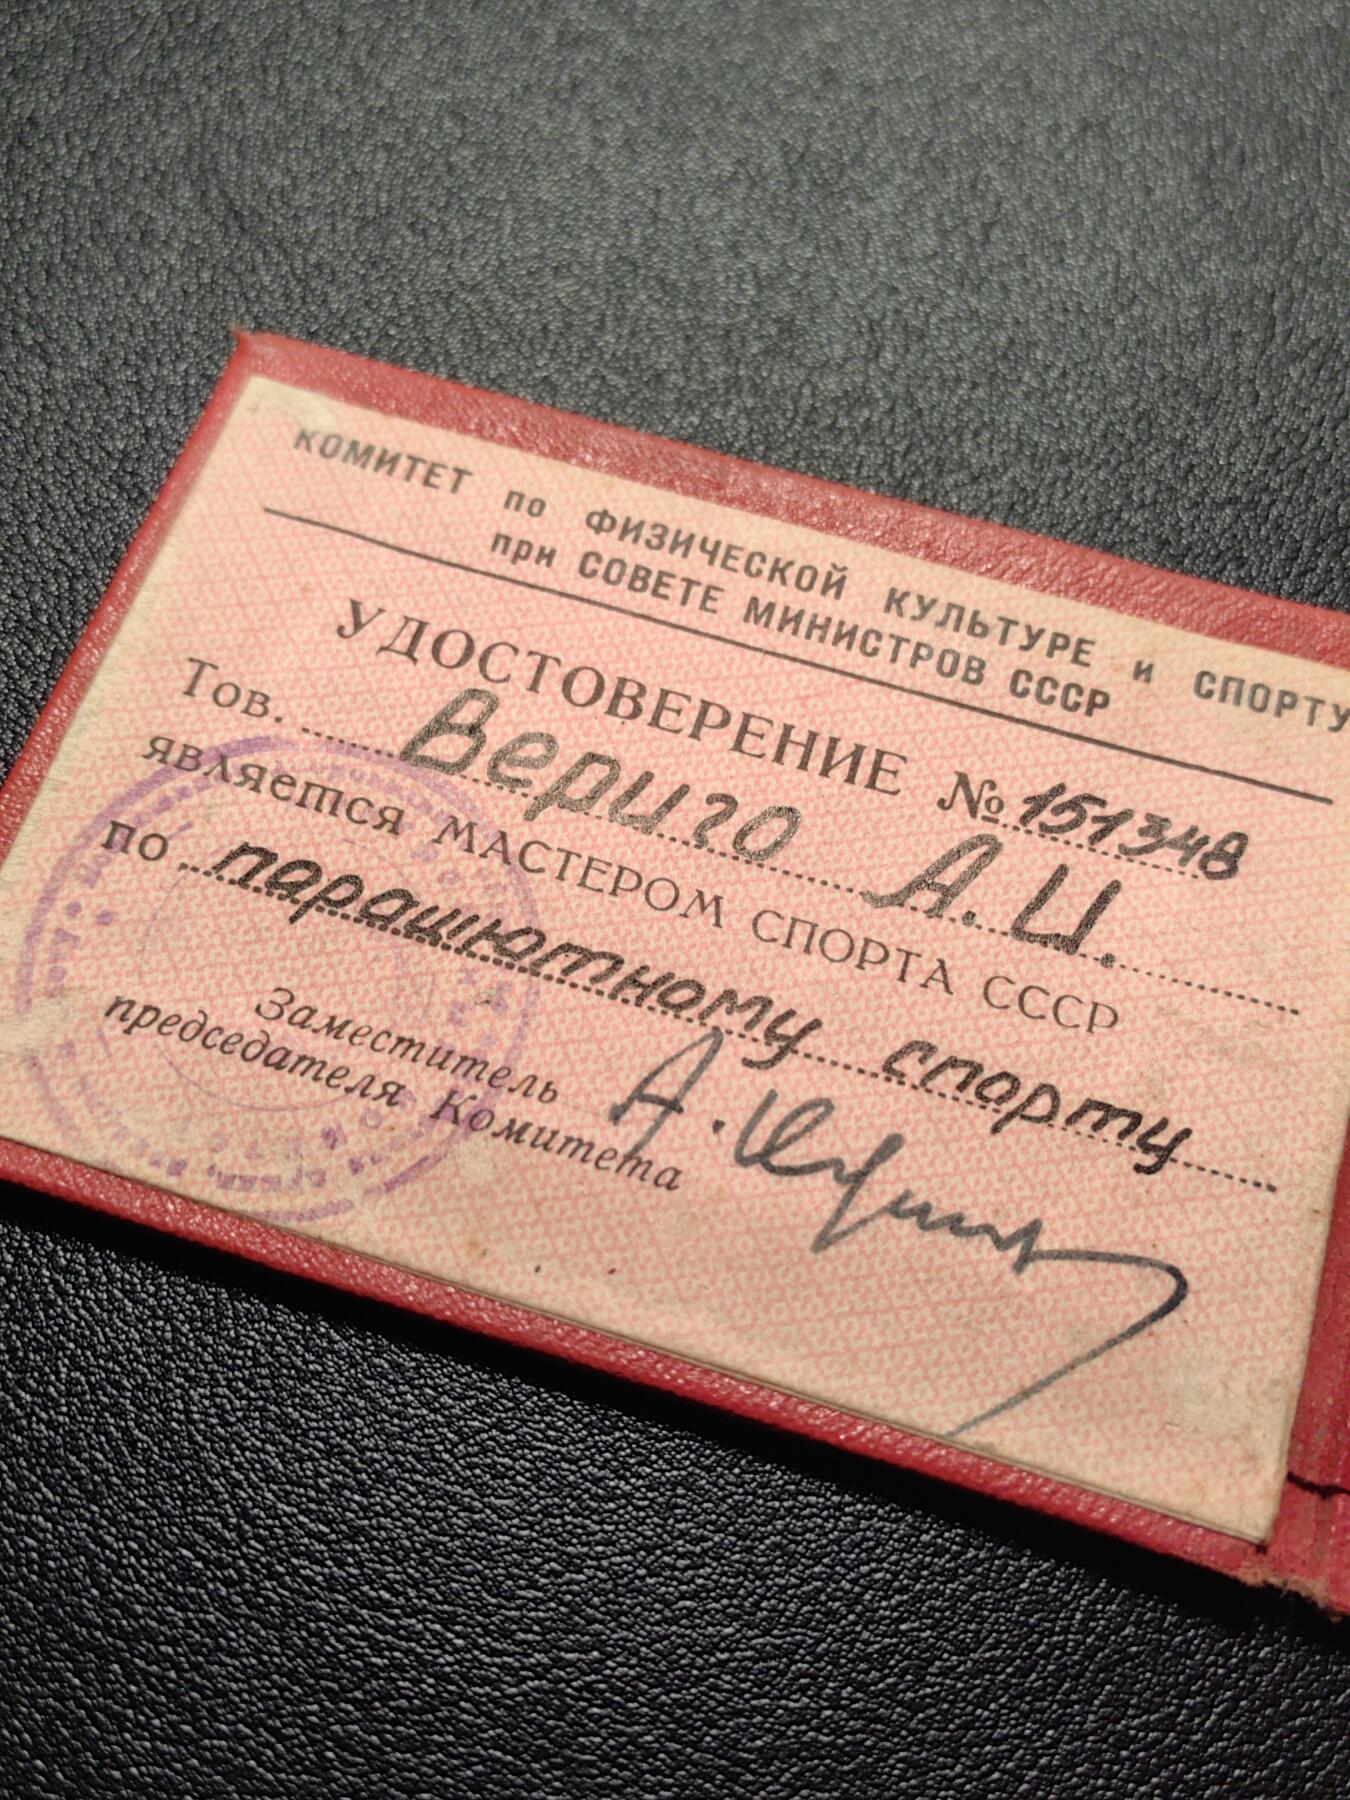 КОМИТЕТ по ФИЗИЧЕСКОЙ КУЛЬТУРЕ и СПОРТУ
при СОВЕТЕ МИНИСТРОВ СССР
УДОСТОВЕРЕНИЕ № 151348
Тов. Вериго А.И.
является МАСТЕРОМ СПОРТА СССР
по парашютному спорту
Заместитель
председателя Комитета